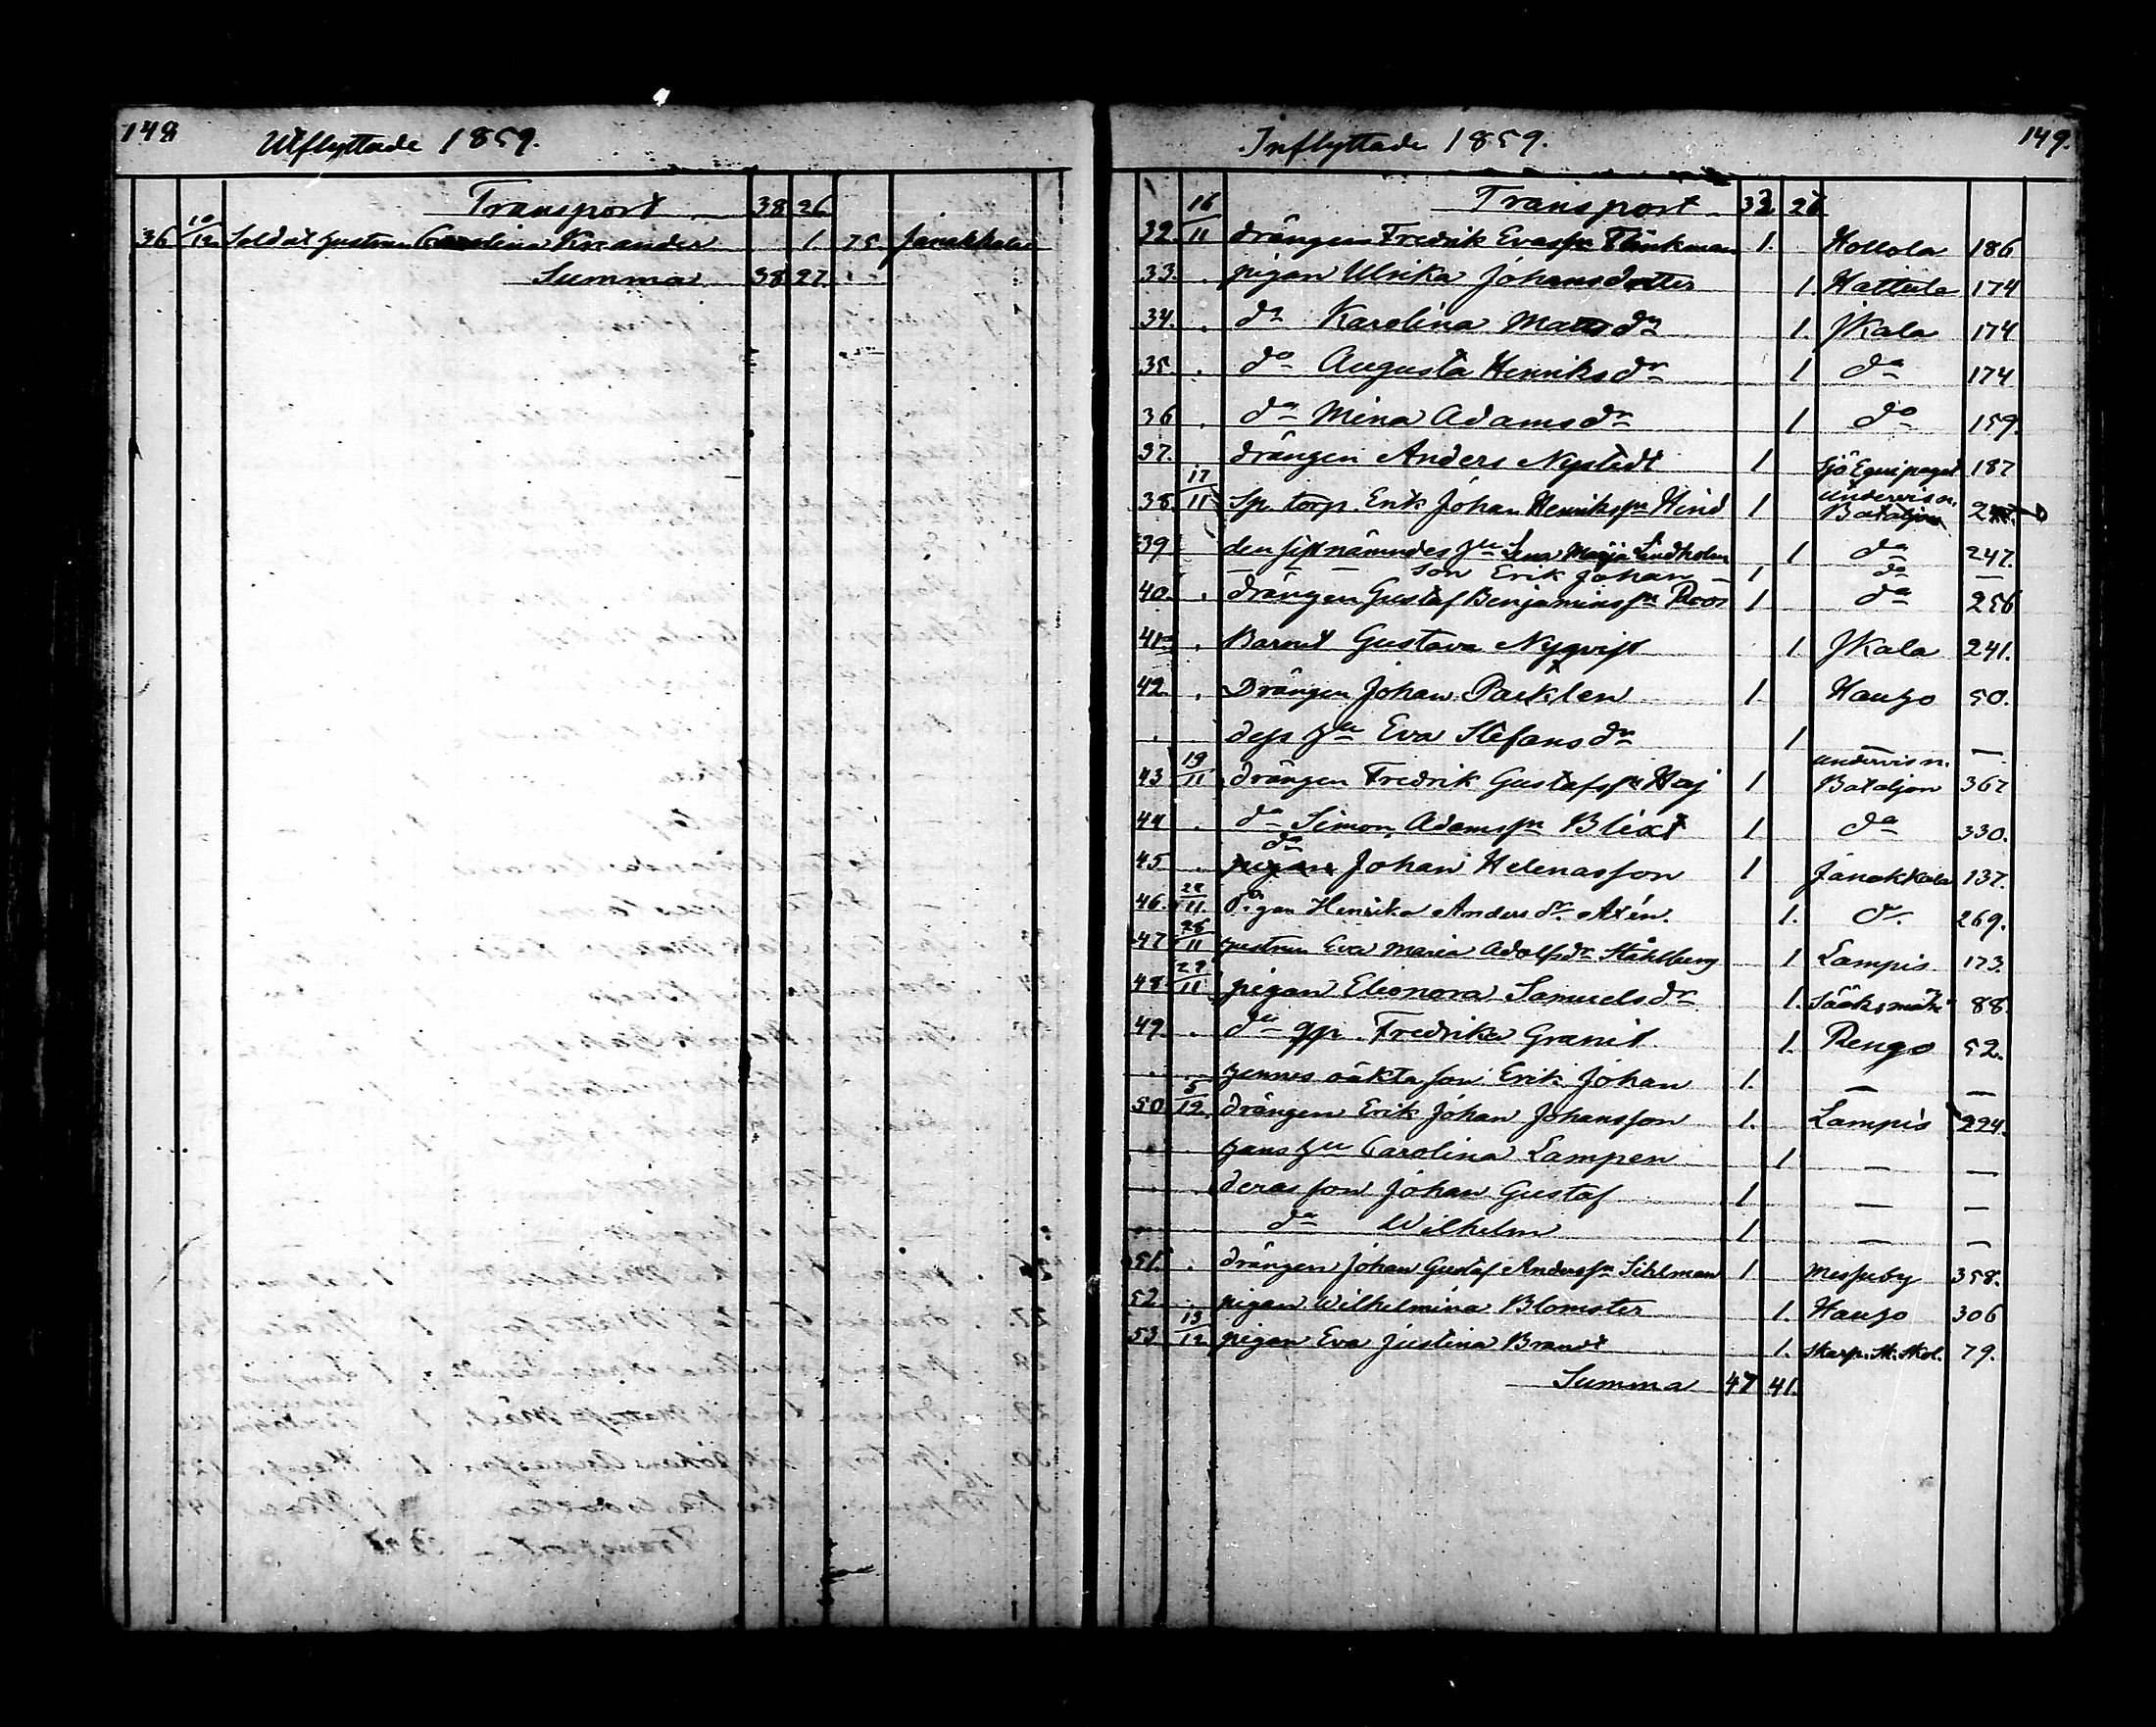 148
Utflyttade 1859.
Transport 38 26
36 10/12 Soldat hustrun Carolina 1. 75 Janakkala
Summa 38 27.
Inflyttade 1859. 149.
Transport 32. 26
32 16/11 drängen Fredrik Evasson Flinkman 1. Hollola 186
33. . pigan Ulrika Johansdotter 1. Hattula 174
34. . do Karolina Matsdr 1. Kala 174
35. . do Augusta Henriksdr 1 do 174
36 . do Mina Adamsdr 1 do 159.
37. drängen Anders Nystedt 1 Sjö Equipaget 187
38. 17/11 Sp. torp. Erik Johan Henriksson Hind 1 undervisn. Bataljon
39 den sistnämndes hu Lena Maija Lindholm 1 do 247.
son Erik Johan 1 do —
40. . drängen Gustaf Benjaminsson Roos 1 do 256
41. . Barnet Gustava Nyqvist 1 Kala 241.
42. . Drängen Johan Packlen 1. Hauho 50.
. . dess hu Eva Stefansdr 1 — —
43 19/11 drängen Fredrik Gustafsson Haj 1 undervisn. Bataljon 367
44 . do Simon Adamsson Blixt 1 do 330.
45 . do Johan Helenasson 1 Janakkala 137.
46. 22/11. pigan Henrika Andersdr Axén. 1. do. 269.
47 26/11 hustrun Eva Maria Adolfsdr Ståhlberg 1 Lampis 173.
48. 29/11 pigan Eleonora Samuelsdr 1. Sääksmäki 88.
49. . do qp. Fredrika Granit 1. Rengo 52.
. . hennes oäkta son Erik Johan 1. — —
50. 5/12. drängen Erik Johan Johansson 1. Lampis 224.
. . hans hu Carolina Lampen 1 — —
. . deras son Johan Gustaf 1 — —
. do Wilhelm 1 — —
51. . drängen Johan Gustaf Andersson Sihlman 1 Messuby 358.
52 . pigan Wilhelmina Blomster 1. Hauho 306
53. 13/12 pigan Eva Justina Brandt 1. Skarp. Sk. Skol. 79.
Summa 47 41.